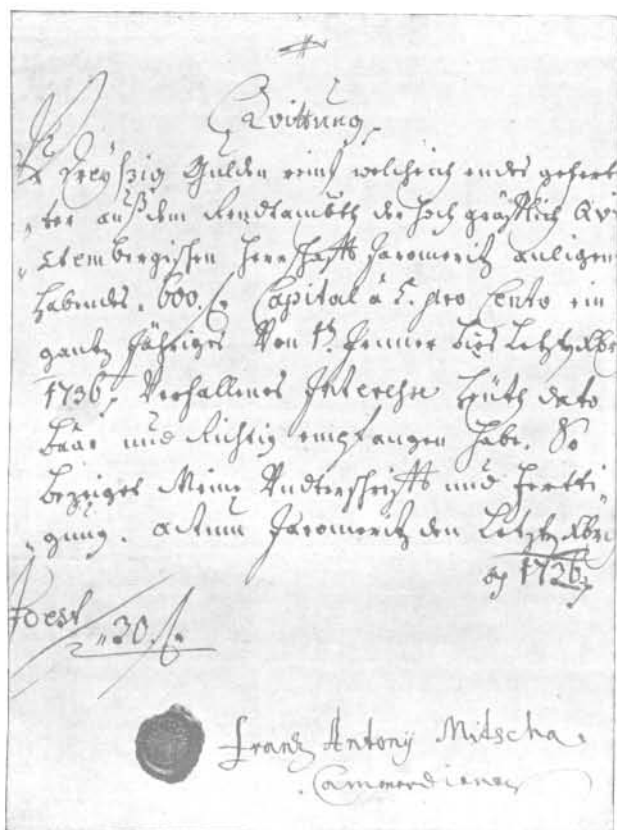 Quittung
Dreyszig Gulden reinß welche ich endes gefert
„ter auß dem Rendtambth der Hoch gräfflich Que
„stembergischen Herrschafft Jaromeritz anligen
habendes „600. f. Capital à 5. pro Cento ein
gantz Jähriges Von 1t. Jenner bies Letzt Xbri
1736. Verfallenes Interesse heüth dato
baar und Richtig empfangen habe. So
bezeiget Meine Undterschrifft und Fertti„
„gung. actum Jaromeritz den Letzt Xbri
1736
„30. f.
Frantz Antony Mitscha.
Cammerdiener